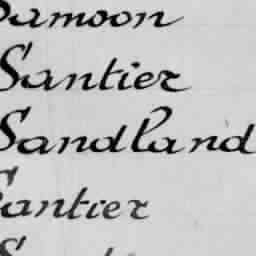 Samoon
Santier
Sandland
Santier